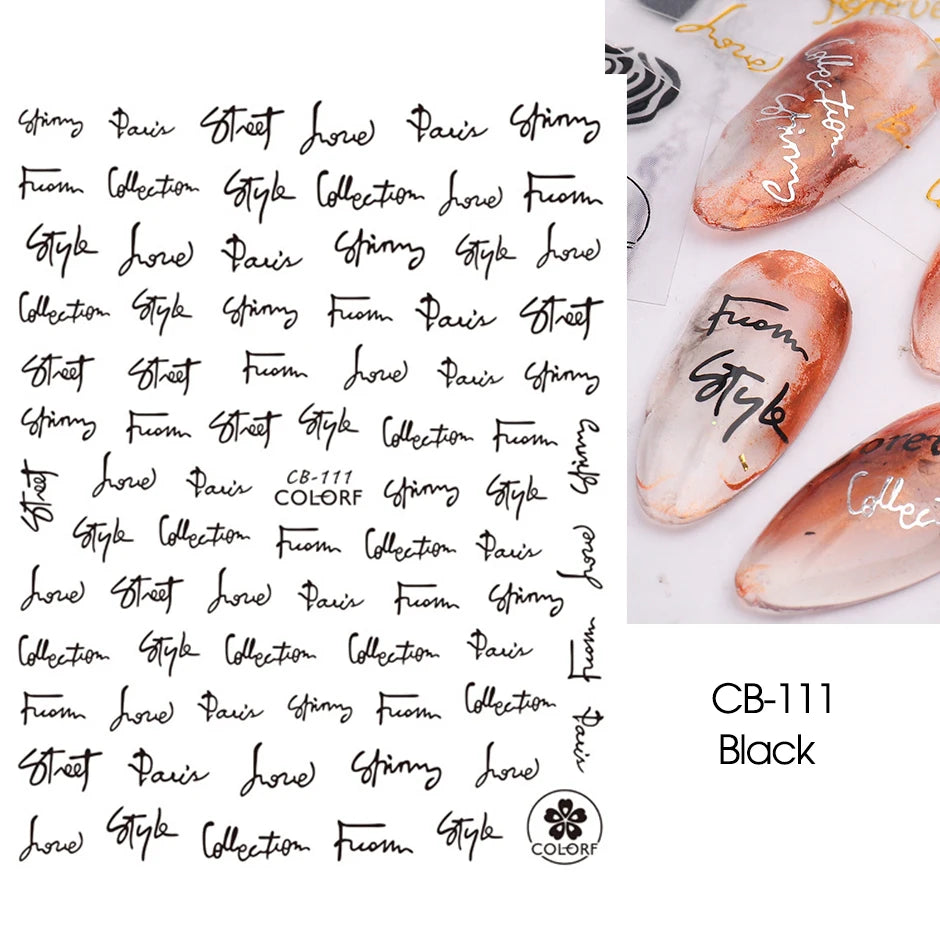 Spinny Paris Street Love Paris Spinny
From Collection Style Collection Love From
Style Love Paris Spinny Style Love
Collection Style Spinny From Paris Street
Street Street From Love Paris Spinny
Spinny From Street Style Collection From Spinny
Street Love Paris CB-111 Spinny Style
COLORF
Style Collection From Collection Paris Love
Love Street Love Paris From Spinny
Collection Style Collection Collection Paris From
From Love Paris Spinny From Collection Paris
Street Paris Love Spinny Love
Love Style Collection From Style
COLORF
Love
Collection
Spinny
From
Style
Collec
CB-111
Black